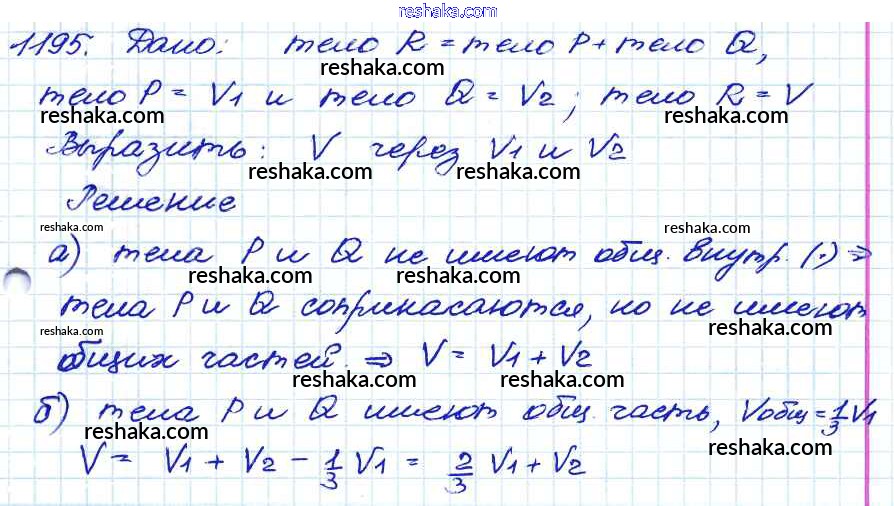 reshaka.com
1195. Дано: тело R = тело P + тело Q,
reshaka.com
тело P = V1 и тело Q = V2; тело R = V
reshaka.com reshaka.com
Выразить: V через V1 и V2
reshaka.com reshaka.com
Решение
reshaka.com reshaka.com
а) тела P и Q не имеют общ. внутр. (·) ⇒
reshaka.com reshaka.com
тела P и Q соприкасаются, но не имеют
reshaka.com reshaka.com
общих частей ⇒ V = V1 + V2
reshaka.com reshaka.com
б) тела P и Q имеют общ. часть, Vобщ = 1/3 V1
reshaka.com reshaka.com
V = V1 + V2 - 1/3 V1 = 2/3 V1 + V2
reshaka.com reshaka.com